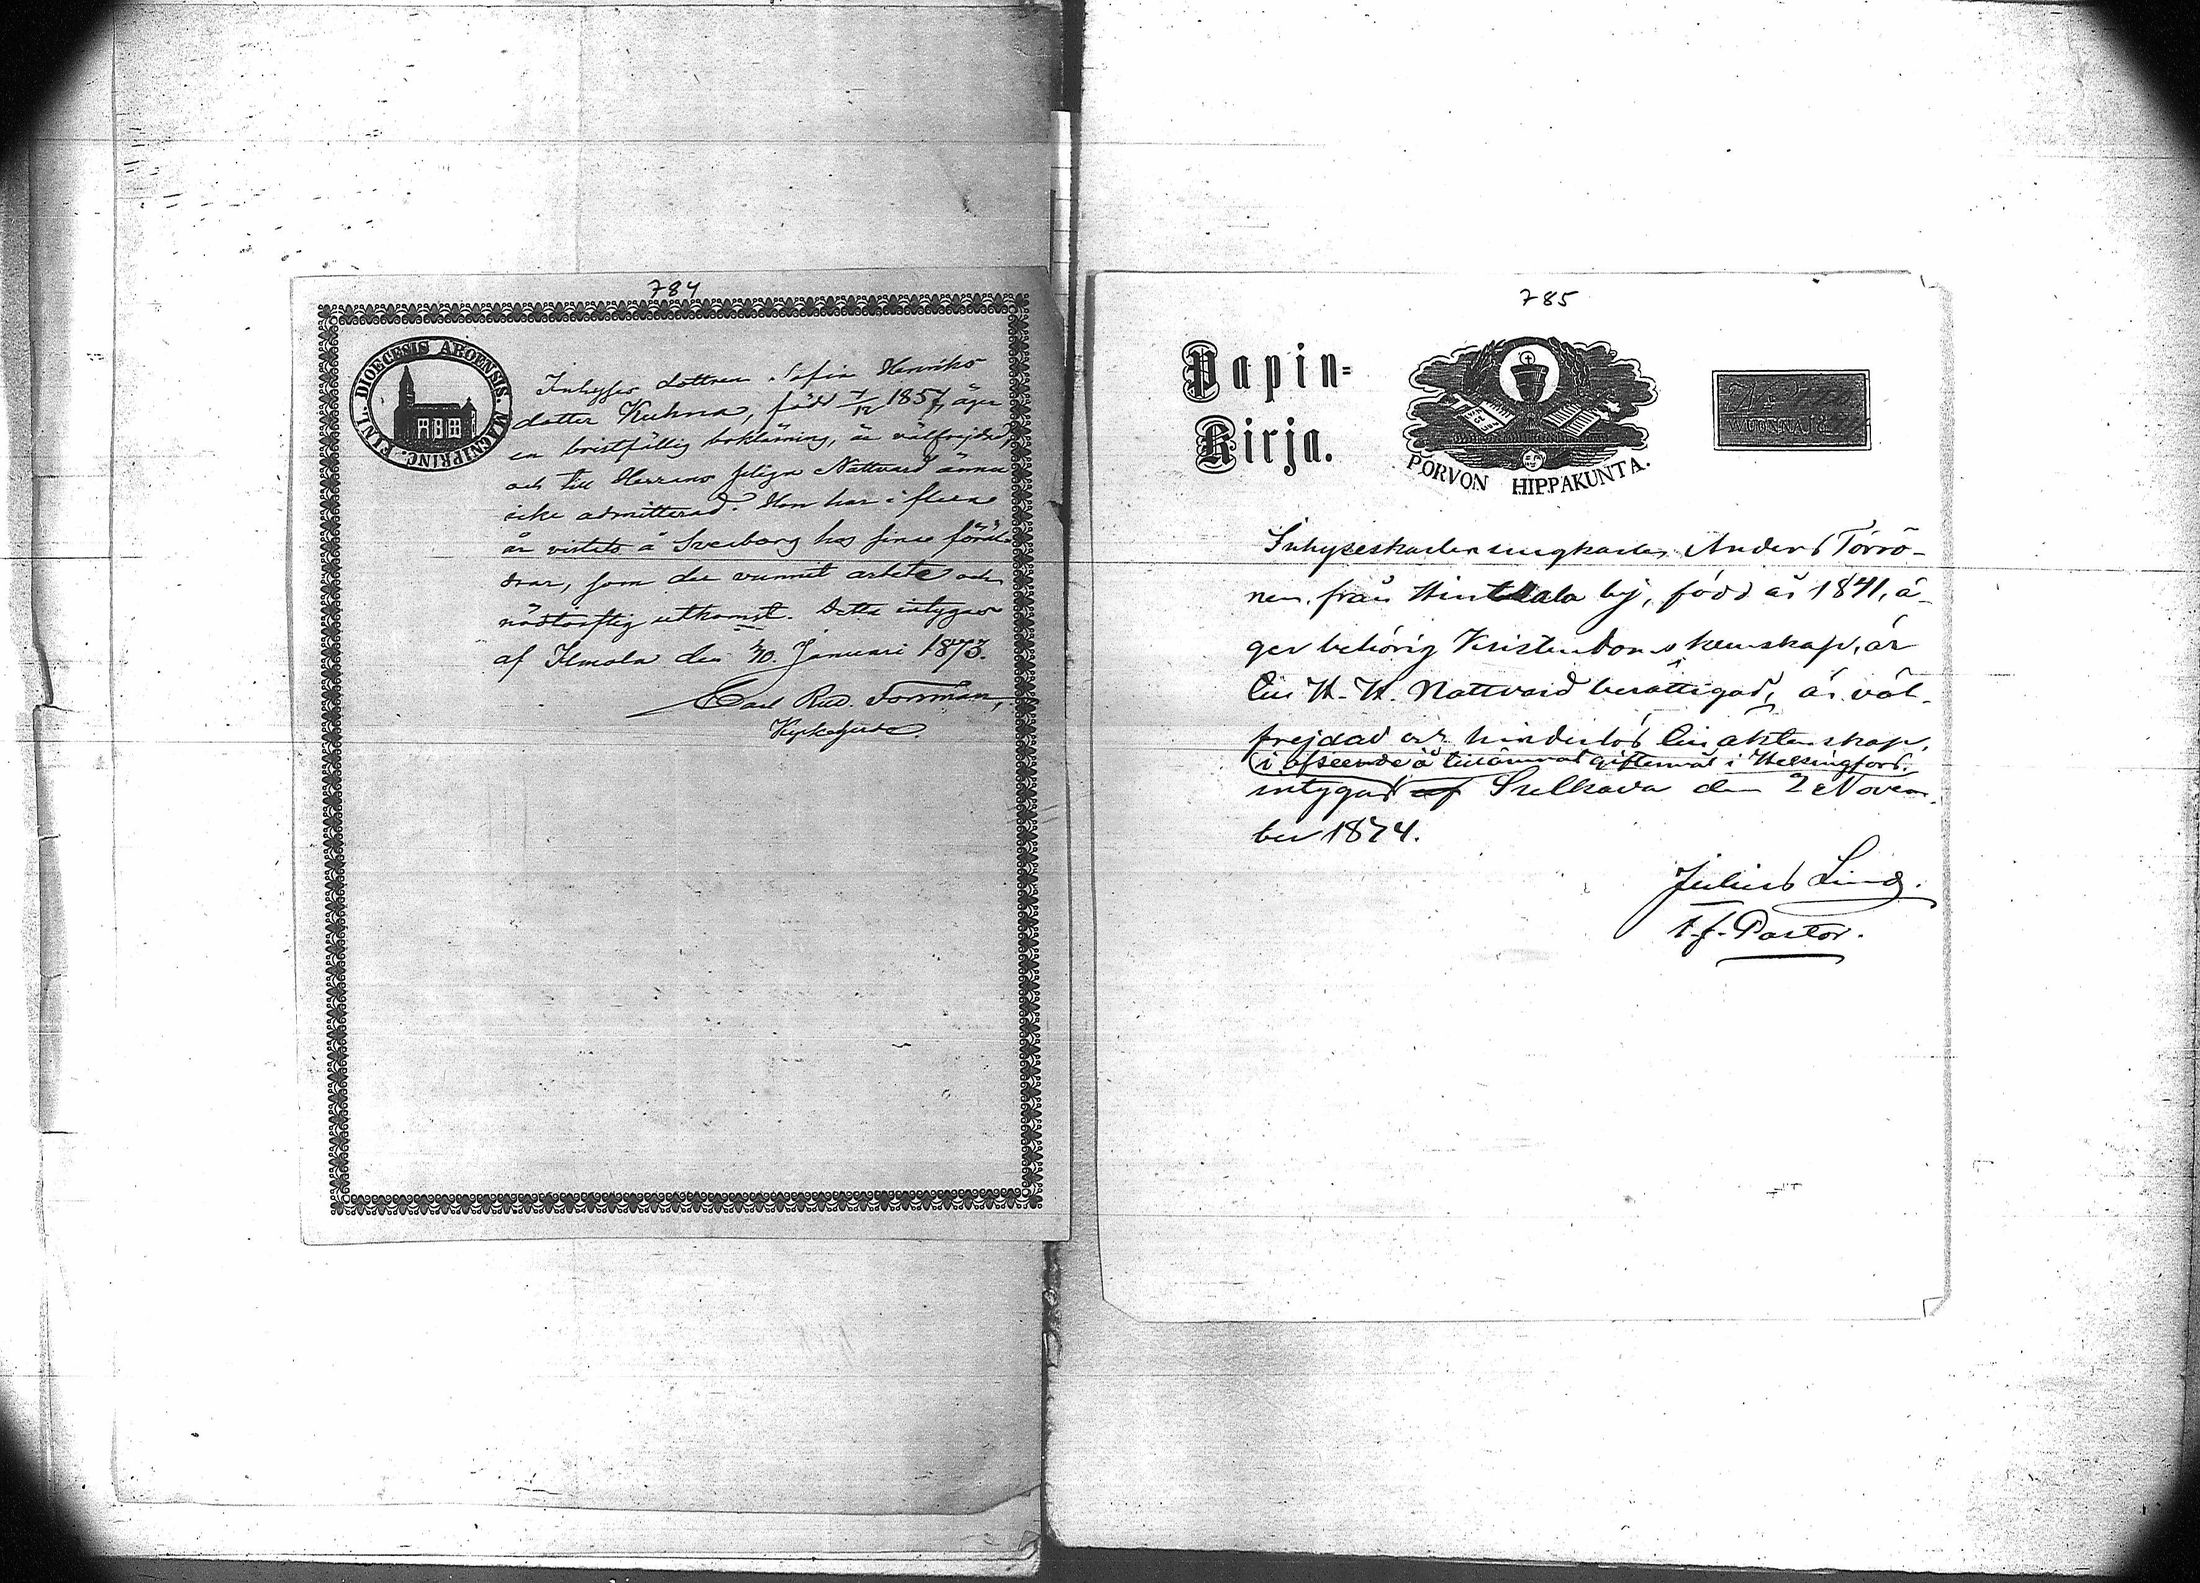 784
FINL. DIOECESIS ABOENSIS. MAGNIPRINC.
Inhyses dottren Sofia Henriks
dotter Kuhna, född 7/12 1857, äger
en bristfällig boklärning, är välfrejdad,
och till Herrans heliga Nattvard ännu
icke admitterad. Hon har i flera
år vistats å Sveaborg hos sine föräl
drar, som der vunnit arbete och
nödtorftig utkomst. Detta intygas
af Ilmola den 30. Januari 1873.
Carl Rud. Forsman,
Kyrkoherde.
785
Papin-
Kirja.
PORVON HIPPAKUNTA.
WUONNA 18
Inhyseskarlen ungkarlen Anders Törrö-
nen från Hintsala by, född år 1841, ä-
ger behörig Kristendomskunskap, är
till H. H. Nattvard berättigad, är väl-
frejdad och hinderlös till äktenskap,
i afseende å tillämnat giftermål i Helsingfors.
intygas af Sulkava den 2 Novem-
ber 1874.
Julius Lind.
t.f. Pastor.